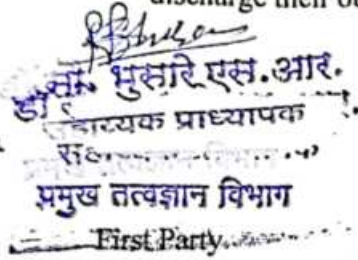 discharge their
डॉ. भुसारे एस.आर.
सहाय्यक प्राध्यापक
प्रमुख तत्वज्ञान विभाग
First Party